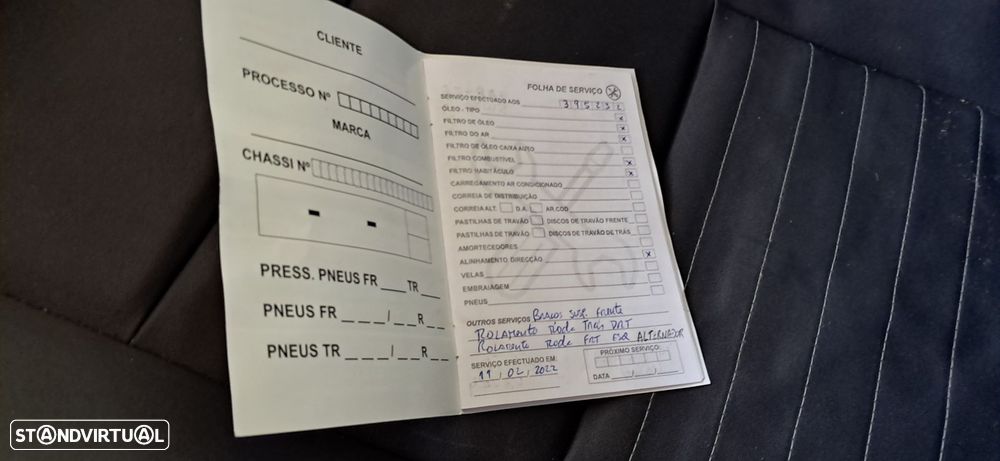 CLIENTE
PROCESSO Nº
MARCA
CHASSI Nº
PRESS. PNEUS FR ___ TR ___
PNEUS FR _ _ _ / _ _ R _ _
PNEUS TR _ _ _ / _ _ R _ _
FOLHA DE SERVIÇO
SERVIÇO EFECTUADO AOS 395232
ÓLEO - TIPO x
FILTRO DE ÓLEO x
FILTRO DO AR x
FILTRO DE ÓLEO CAIXA AUTO
FILTRO COMBUSTÍVEL x
FILTRO HABITÁCULO x
CARREGAMENTO AR CONDICIONADO
CORREIA DE DISTRIBUIÇÃO
CORREIA ALT. D.A. AR.COD
PASTILHAS DE TRAVÃO DISCOS DE TRAVÃO FRENTE
PASTILHAS DE TRAVÃO DISCOS DE TRAVÃO DE TRÁS
AMORTECEDORES
ALINHAMENTO DIRECÇÃO x
VELAS
EMBRAIAGEM
PNEUS
OUTROS SERVIÇOS Braços susp. Frente
Rolamento Roda Tras
Rolamento Roda ESQ ALTERNADOR
SERVIÇO EFECTUADO EM:
11 / 02 / 2022
PRÓXIMO SERVIÇO
DATA __/__/__
STANDVIRTUAL